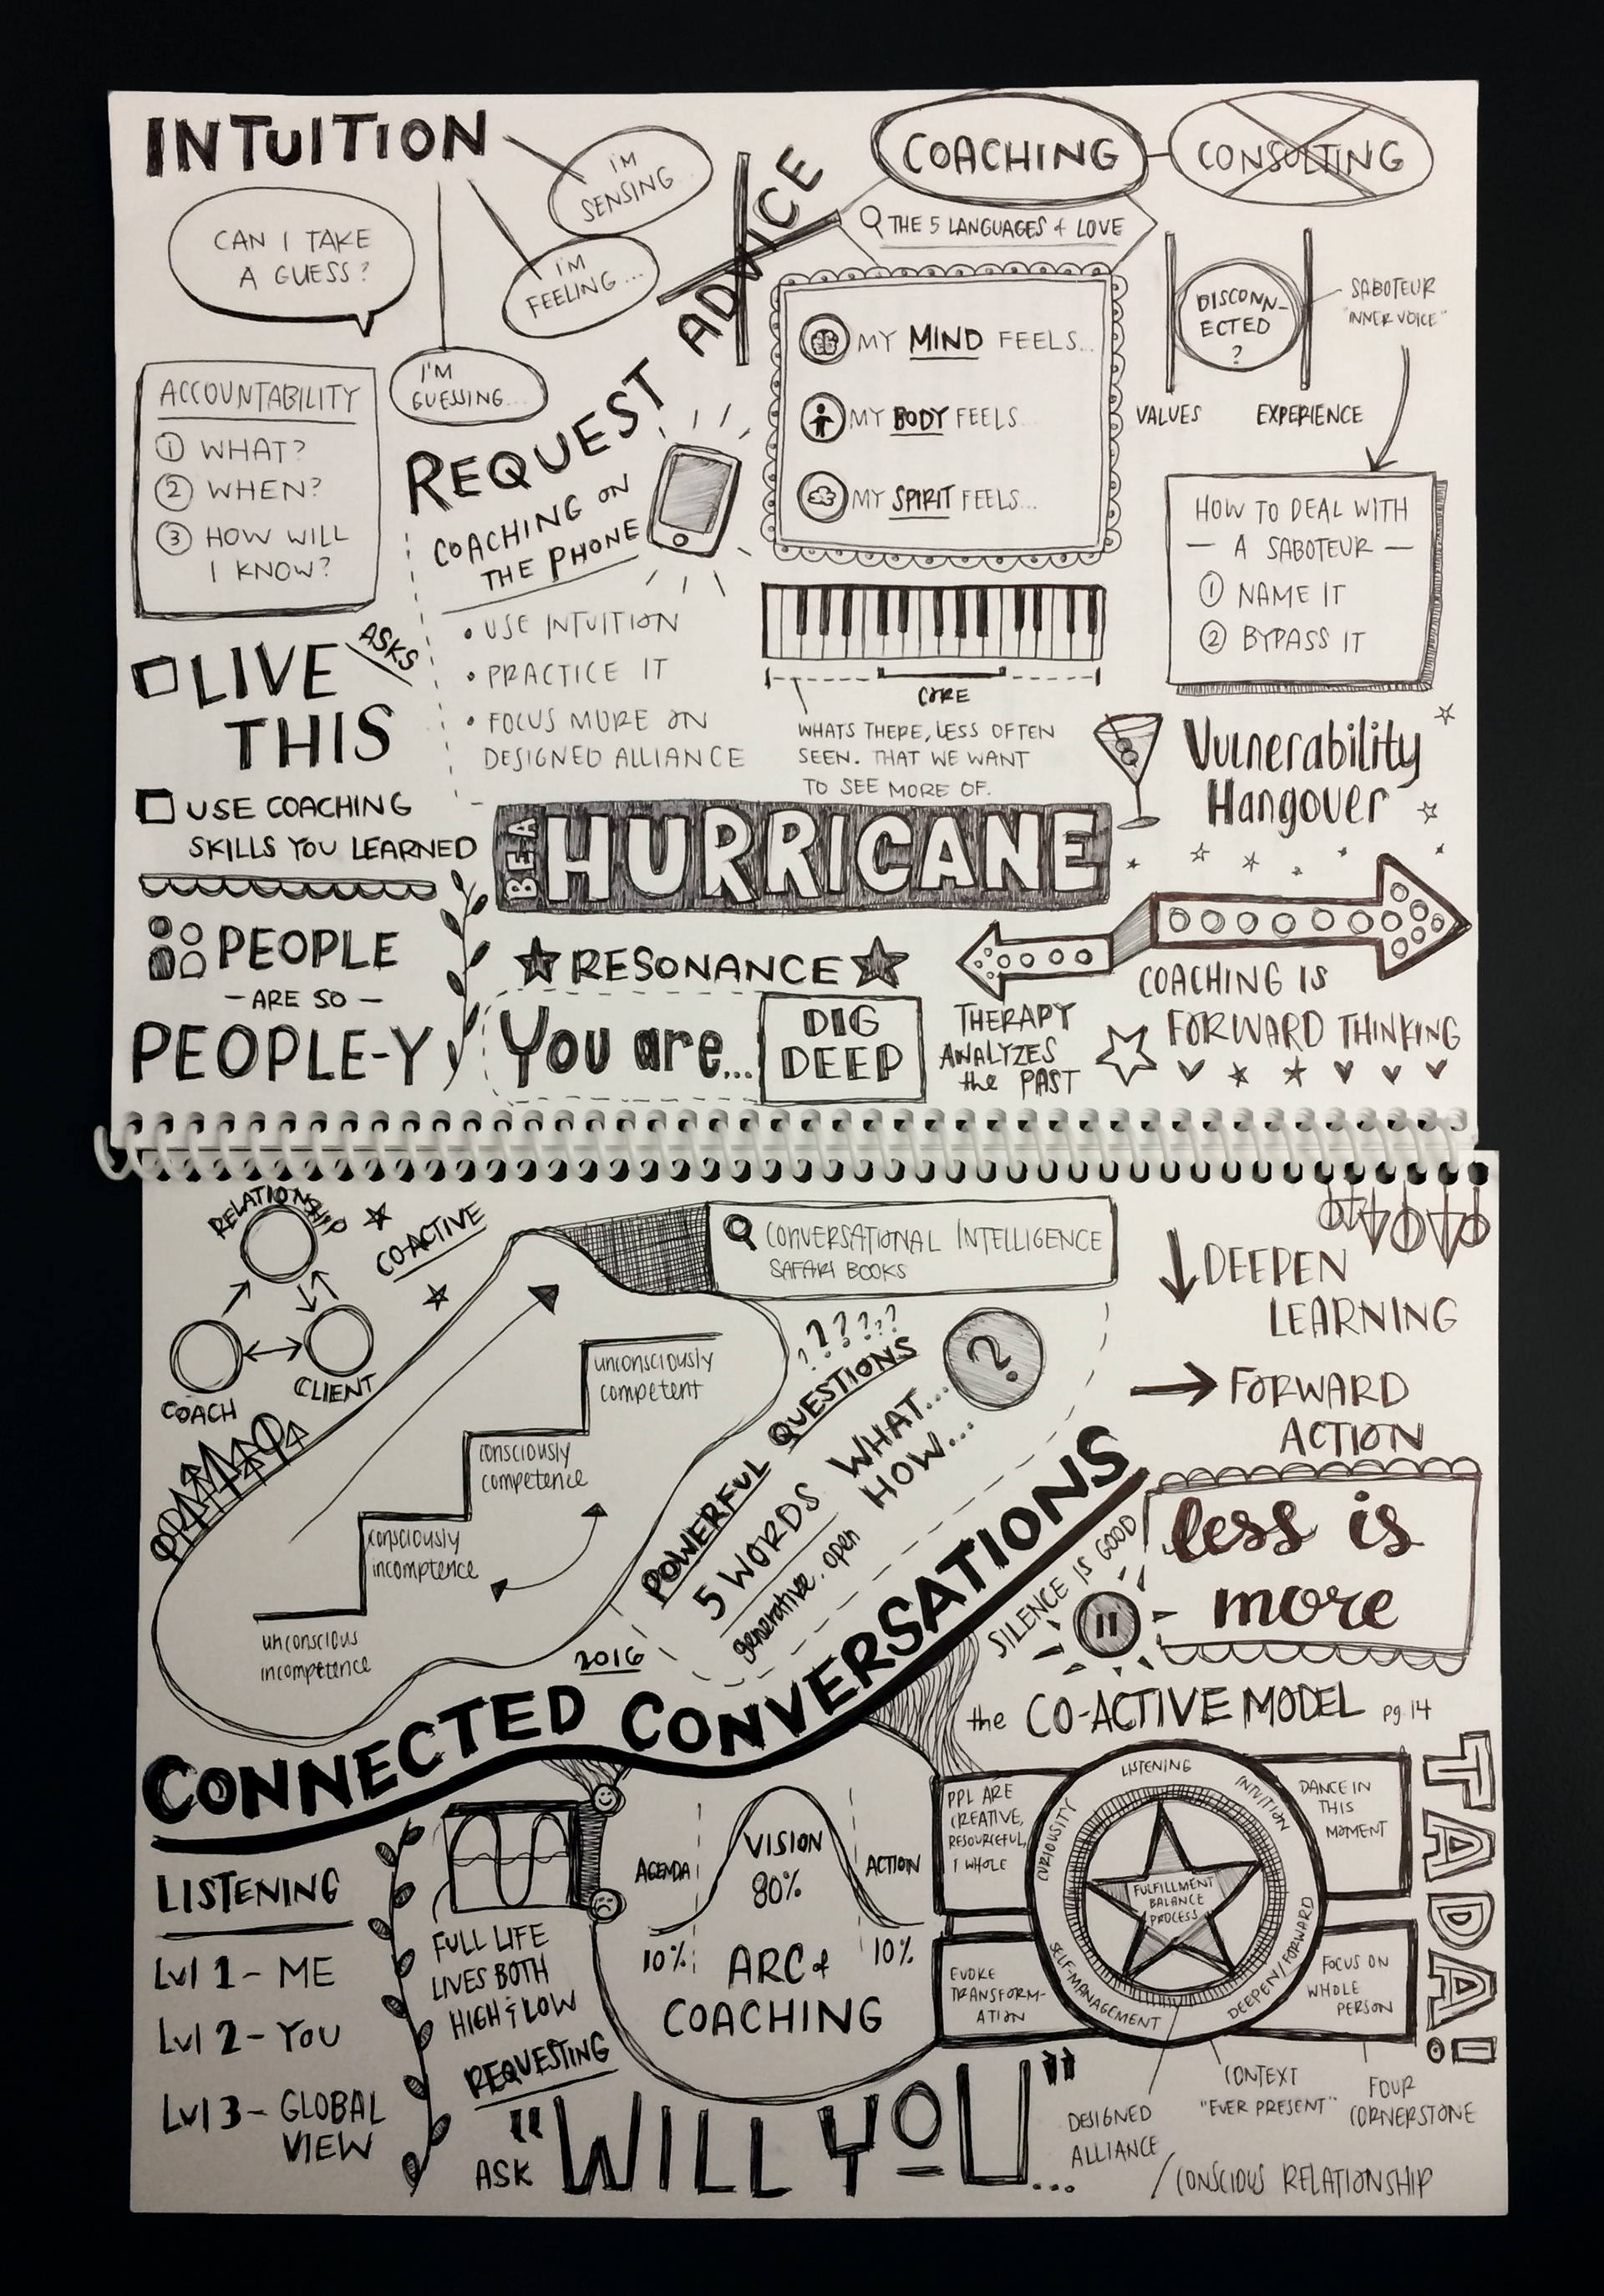 INTUITION
I'M
SENSING
I'M
FEELING...
I'M
GUESSING...
CAN I TAKE
A GUESS?
ACCOUNTABILITY
1 WHAT?
2 WHEN?
3 HOW WILL
I KNOW?
ASKS
LIVE
THIS
USE COACHING
SKILLS YOU LEARNED
PEOPLE
- ARE SO -
PEOPLE-Y
REQUEST ADVICE
COACHING ON
THE PHONE
• USE INTUITION
• PRACTICE IT
• FOCUS MORE ON
DESIGNED ALLIANCE
COACHING
CONSULTING
THE 5 LANGUAGES of LOVE
MY MIND FEELS...
MY BODY FEELS...
MY SPIRIT FEELS...
CORE
WHATS THERE, LESS OFTEN
SEEN. THAT WE WANT
TO SEE MORE OF.
DISCONN-
ECTED
?
VALUES
EXPERIENCE
SABOTEUR
"INNER VOICE"
HOW TO DEAL WITH
— A SABOTEUR —
1 NAME IT
2 BYPASS IT
Vulnerability
Hangover
BE A HURRICANE
RESONANCE
You are...
DIG
DEEP
THERAPY
ANALYZES
the PAST
COACHING IS
FORWARD THINKING
RELATIONSHIP
CO-ACTIVE
COACH
CLIENT
CONVERSATIONAL INTELLIGENCE
SAFARI BOOKS
unconsciously
competent
consciously
competence
consciously
incomptence
unconscious
incompetence
??????
POWERFUL QUESTIONS
5 WORDS WHAT...
HOW...
generative. open
?
DEEPEN
LEARNING
FORWARD
ACTION
less is
more
SILENCE IS GOOD
2016
CONNECTED CONVERSATIONS
LISTENING
Lvl 1 - ME
Lvl 2 - YOU
Lvl 3 - GLOBAL
VIEW
FULL LIFE
LIVES BOTH
HIGH & LOW
AGENDA
VISION
80%
ACTION
10%
10%
ARC of
COACHING
REQUESTING
ASK "WILL YOU"...
the CO-ACTIVE MODEL pg. 14
PPL ARE
CREATIVE,
RESOURCEFUL,
& WHOLE
DANCE IN
THIS
MOMENT
EVOKE
TRANSFORM-
ATION
FOCUS ON
WHOLE
PERSON
LISTENING
INTUITION
CURIOUSITY
DEEPEN/FORWARD
SELF-MANAGEMENT
FULFILLMENT
BALANCE
PROCESS
TADA!
DESIGNED
ALLIANCE
CONTEXT
"EVER PRESENT"
FOUR
CORNERSTONE
CONSCIOUS RELATIONSHIP